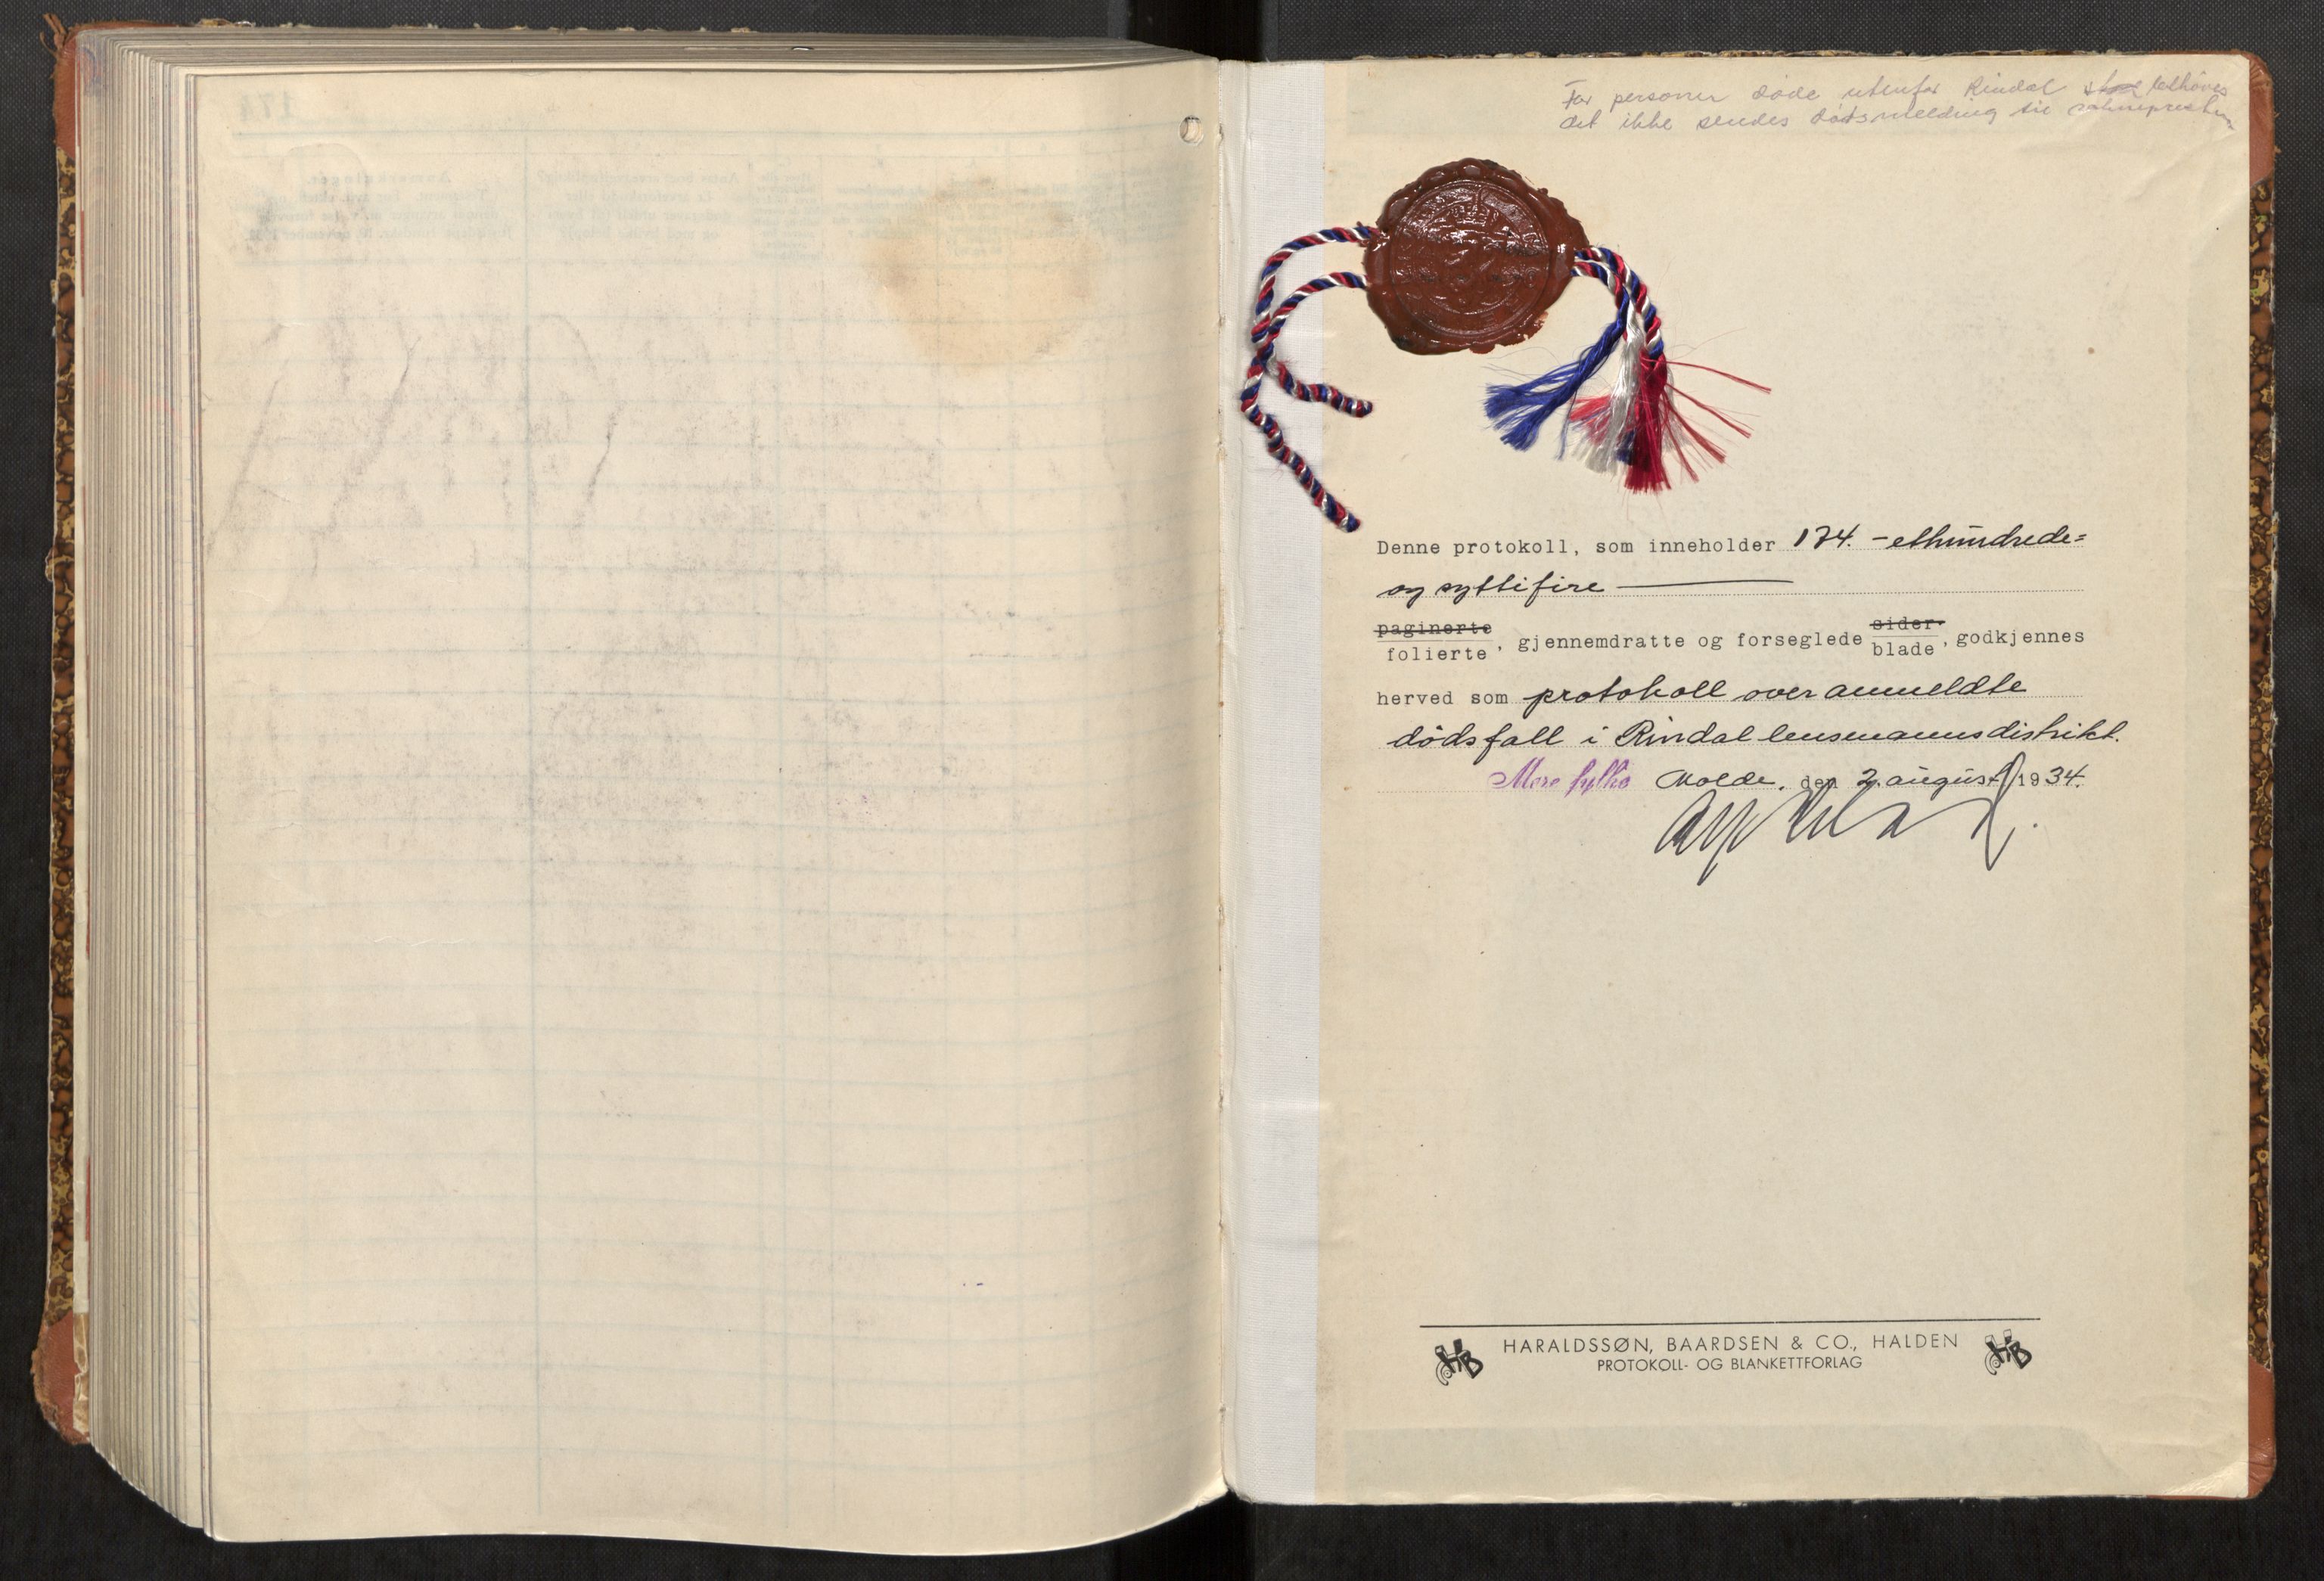 For personer døde utenfor Rindal skal behøves
det ikke sendes dødsmelding til soknepresten
Denne protokoll, som inneholder 174. - ethundrede=
og syttifire
paginerte sider
folierte, gjennemdratte og forseglede blade, godkjennes
herved som protokoll over anmeldte
dødsfall i Rindal lensmannsdistrikt.
Møre fylke Molde, den 2. august 1934.
HARALDSSØN, BAARDSEN & CO., HALDEN
PROTOKOLL- OG BLANKETTFORLAG